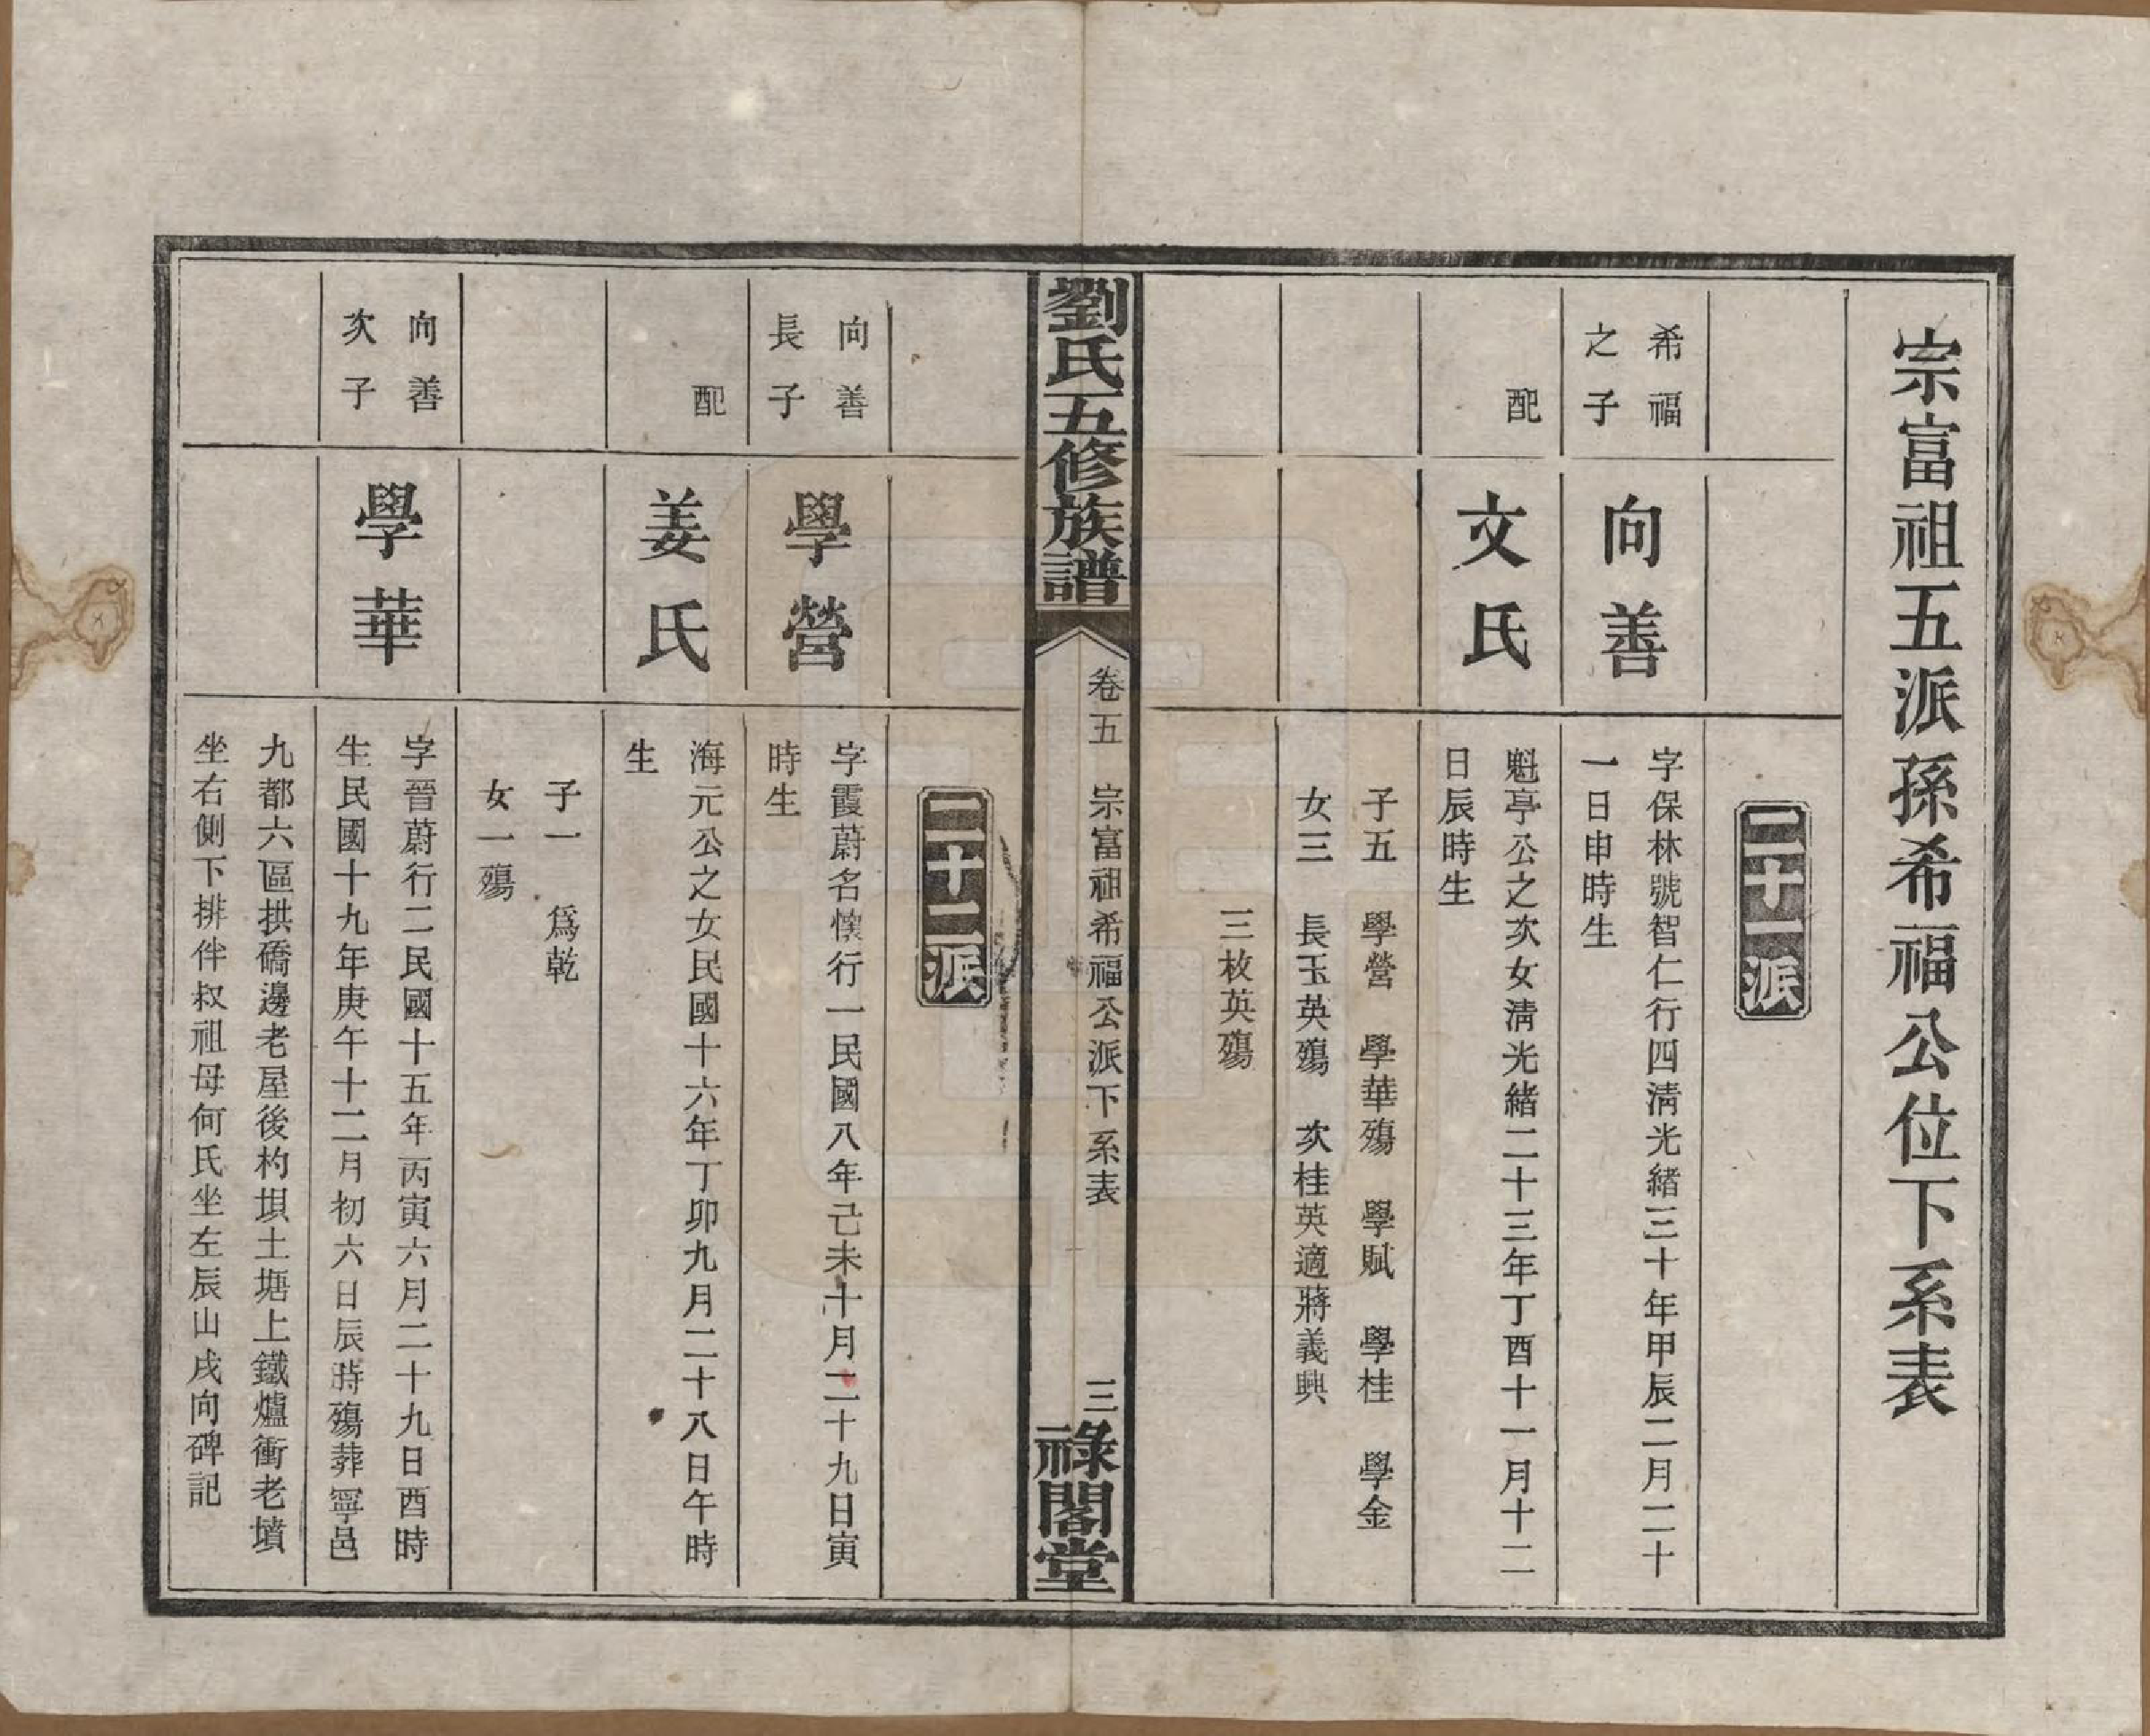 宗富祖五派孫希福公位下系表
二十一派
希福
之子
向善
字保林號智仁行四淸光緒三十年甲辰二月二十
一日申時生
配
文氏
魁亭公之次女淸光緒二十三年丁酉十一月十二
日辰時生
子五　學營　學華殤　學賦　學桂　學金
女三　長玉英殤　次桂英適蔣義興
三枚英殤
劉氏五修族譜
卷五　宗富祖希福公派下系表
三
祿閣堂
二十二派
向善
長子
學營
字霞蔚名懷行一民國八年己未十月二十九日寅
時生
配
姜氏
海元公之女民國十六年丁卯九月二十八日午時
生
子一　爲乾
女一殤
向善
次子
學華
字晉蔚行二民國十五年丙寅六月二十九日酉時
生民國十九年庚午十二月初六日辰時殤葬寧邑
九都六區拱礄邊老屋後杓垻土塘上鐵爐衝老墳
坐右側下排伴叔祖母何氏坐左辰山戌向碑記